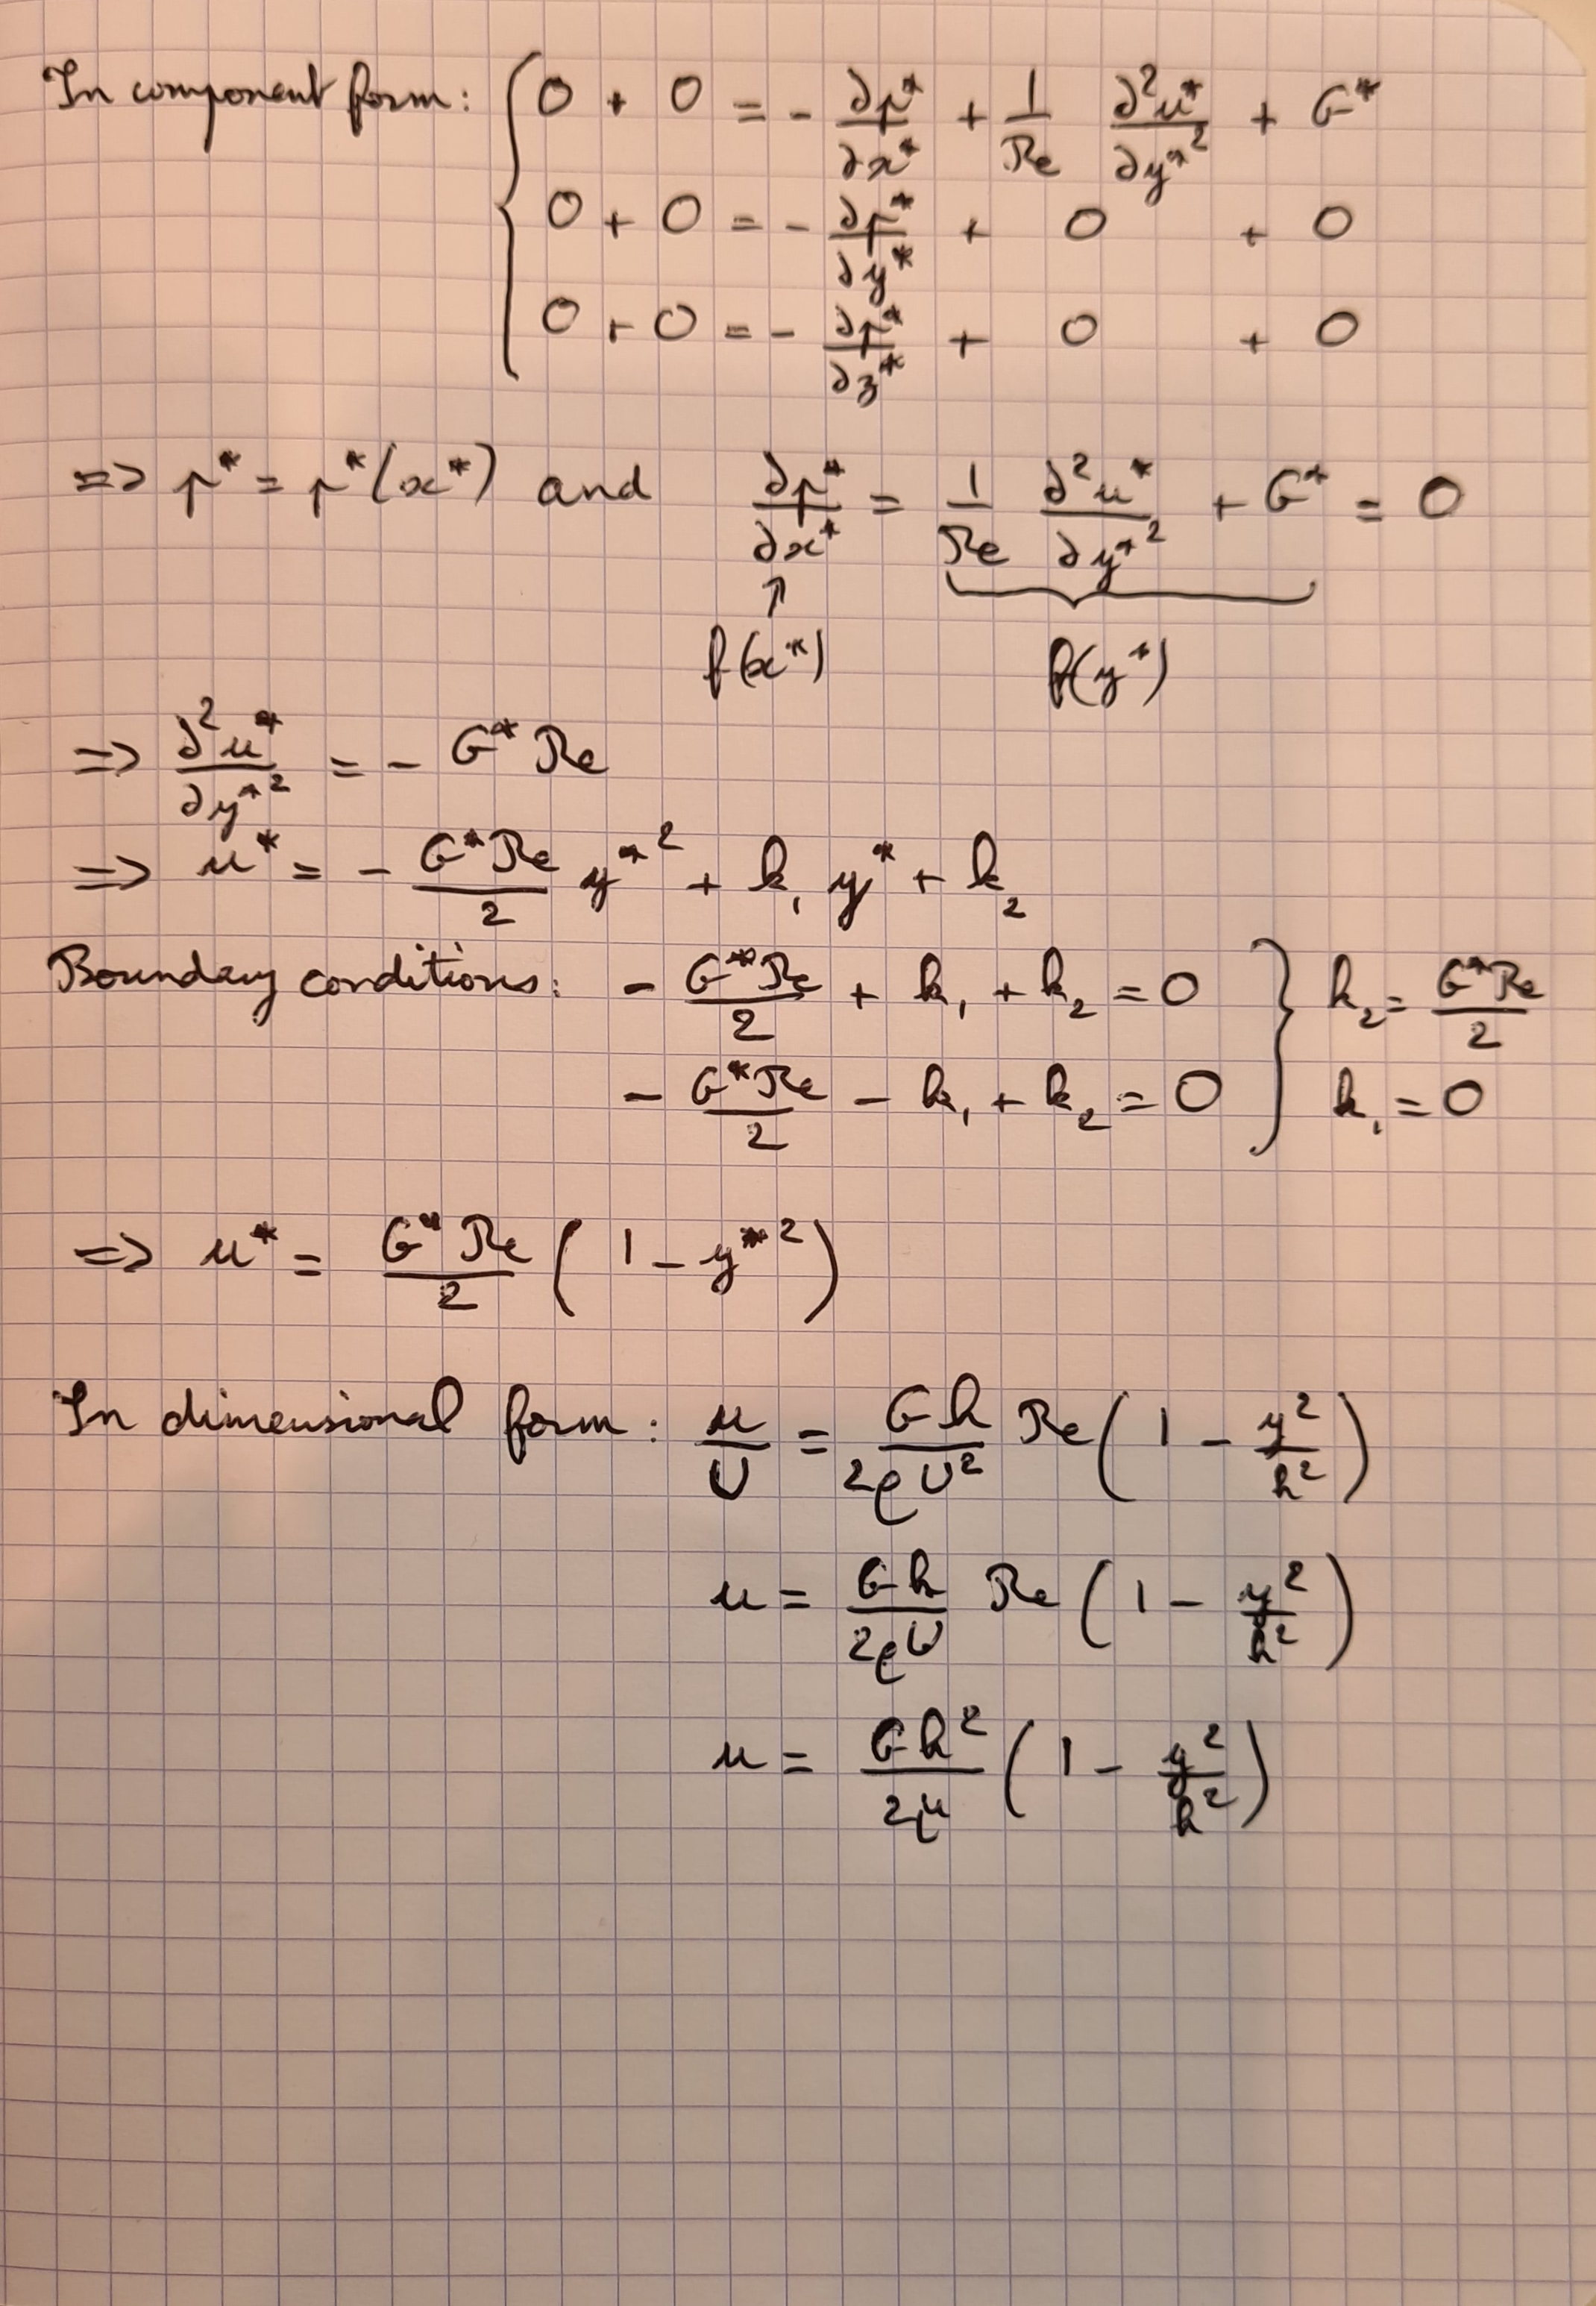 In component form: { 0 + 0 = - ∂p*/∂x* + 1/Re ∂²u*/∂y*² + G*
0 + 0 = - ∂p*/∂y* + 0 + 0
0 + 0 = - ∂p*/∂z* + 0 + 0
=> p* = p*(x*) and ∂p*/∂x* = 1/Re ∂²u*/∂y*² + G* = 0
↑
f(x*) f(y*)
=> ∂²u*/∂y*² = - G* Re
=> u* = - G*Re/2 y*² + k₁ y* + k₂
Boundary conditions: - G*Re/2 + k₁ + k₂ = 0 } k₂ = G*Re/2
- G*Re/2 - k₁ + k₂ = 0 k₁ = 0
=> u* = G*Re/2 ( 1 - y*² )
In dimensional form: u/U = Gh/2ρU² Re ( 1 - y²/h² )
u = Gh/2ρU Re ( 1 - y²/h² )
u = Gh²/2μ ( 1 - y²/h² )